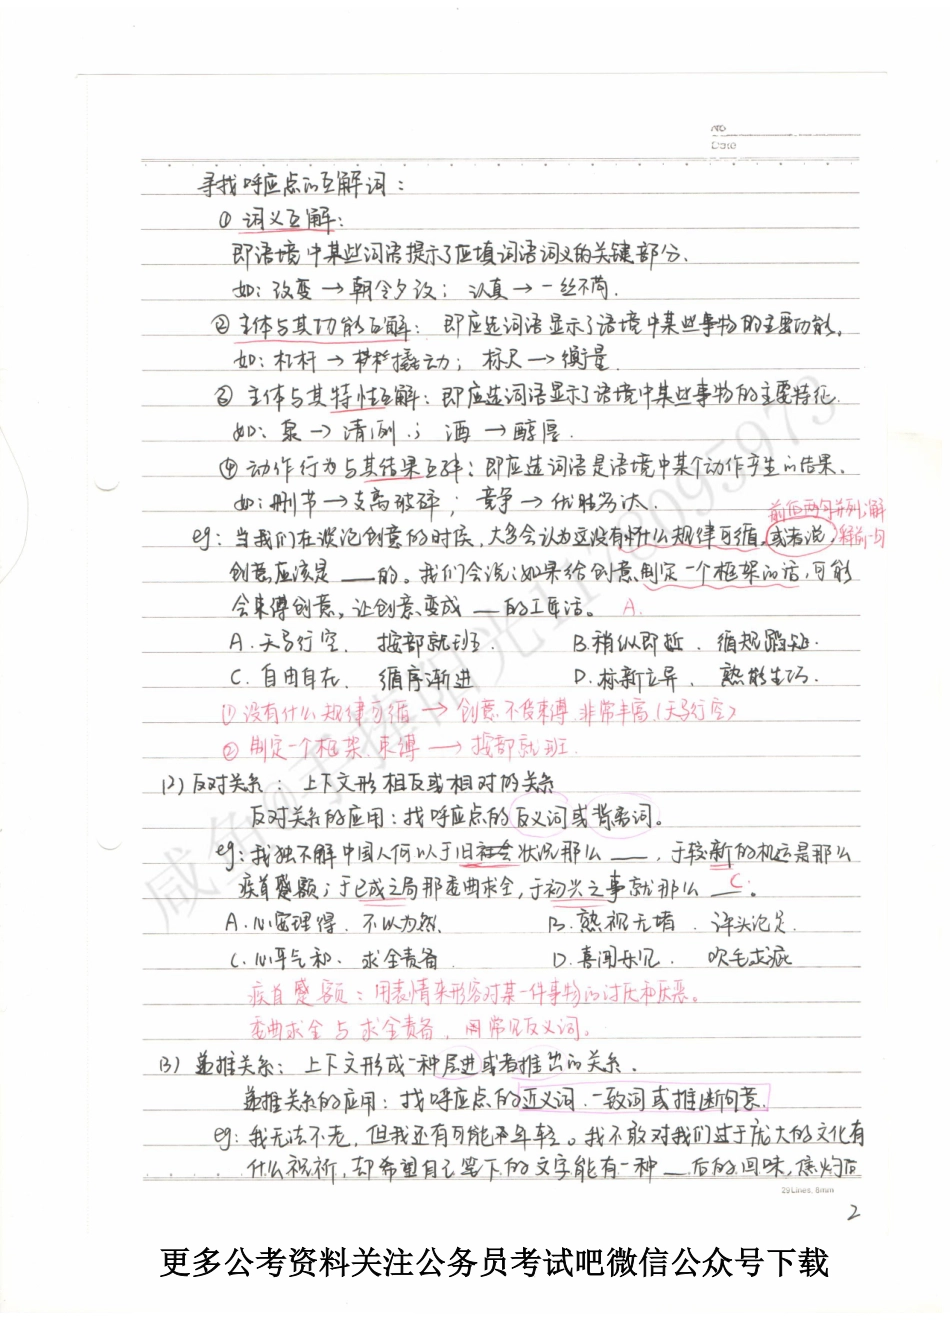 No
Date
寻找呼应点的互解词：
① 词义互解：
即语境中某些词语提示了应填词语词义的关键部分、
如：改变 → 朝令夕改； 认真 → 一丝不苟.
② 主体与其功能互解： 即应选词语显示了语境中某些事物的主要功能.
如：杠杆 → 撬动； 标尺 → 衡量
③ 主体与其特性互解：即应选词语显示了语境中某些事物的主要特征.
如：泉 → 清冽； 酒 → 醇厚.
④ 动作行为与其结果互解：即应选词语是语境中某个动作产生的结果.
如：删节 → 支离破碎； 竞争 → 优胜劣汰.
前后两句并列，解
eg：当我们在谈论创意的时候，大多会认为这没有什么规律可循，或者说， 释前一句
创意应该是 ___ 的。我们会说：如果给创意制定一个框架的话，可能
会束缚创意，让创意变成 ___ 的工匠活。 A.
A.天马行空. 按部就班. B.稍纵即逝. 循规蹈矩.
C.自由自在. 循序渐进 D.标新立异. 熟能生巧.
① 没有什么规律可循 → 创意不受束缚 非常丰富.(天马行空)
② 制定一个框架 束缚 → 按部就班.
(2) 反对关系： 上下文形相反或相对的关系
反对关系的应用：找呼应点的反义词或背离词。
eg：我独不解中国人何以于旧社会状况那么 ___ ，于较新的机运是那么
疾首蹙额；于已成之局那委曲求全，于初兴之事就那么 C 。
A.心安理得. 不以为然. B.熟视无睹. 评头论足.
C.心平气和. 求全责备. D.喜闻乐见. 吹毛求疵
疾首蹙额：用表情来形容对某一件事物的讨厌和厌恶。
委曲求全与求全责备，用常见反义词。
(3) 递推关系： 上下文形成一种层进或者推出的关系.
递推关系的应用：找呼应点的近义词.一致词或推断句意.
eg：我无法不老，但我还有可能不年轻。我不敢对我们过于庞大的文化有
什么祝祈，却希望自己笔下的文字能有一种 ___ 后的回味，焦灼后
29 Lines, 8mm
2
更多公考资料关注公务员考试吧微信公众号下载